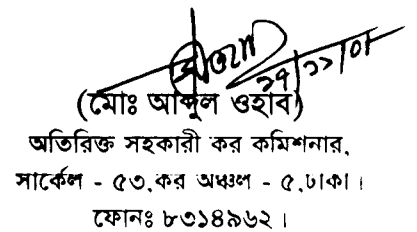 ২৭/১১/০১
(মোঃ আব্দুল ওহাব)
অতিরিক্ত সহকারী কর কমিশনার,
সার্কেল - ৫৩,কর অঞ্চল - ৫,ঢাকা।
ফোনঃ ৮৩১৪৯৬২।